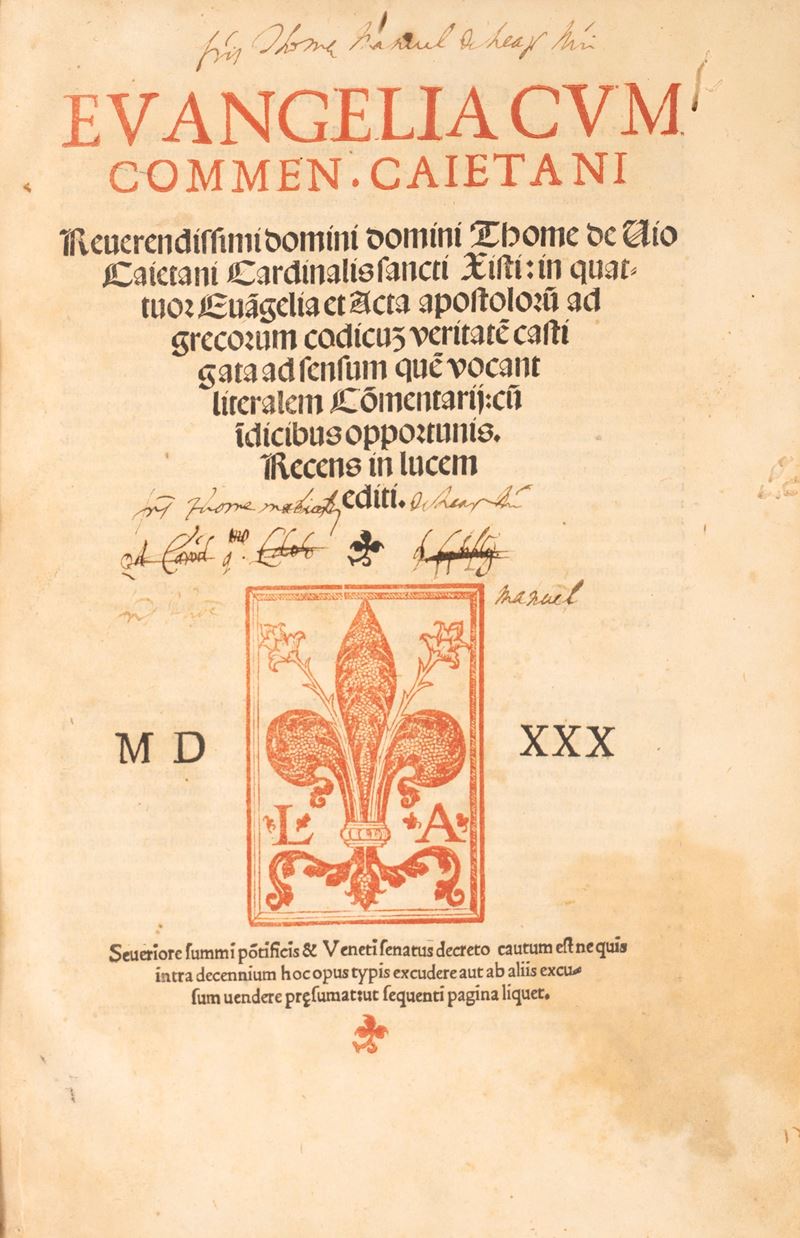 Thome Manuel de
EVANGELIA CVM
COMMEN. CAIETANI
Reuerendissimi domini domini Thome de Uio
Caietani Cardinalis sancti Xisti: in quat-
tuor Euãgelia et Acta apostolorũ ad
grecorum codicuꝫ veritatẽ casti
gata ad sensum quẽ vocant
literalem Cõmentarij: cũ
ĩdicibus opportunis.
Recens in lucem
editi.
Thome
manuel
M D XXX
L A
Seueriore summi põtificis & Veneti senatus decreto cautum est ne quis
intra decennium hoc opus typis excudere aut ab aliis excu-
sum uendere pręsumat: ut sequenti pagina liquet.